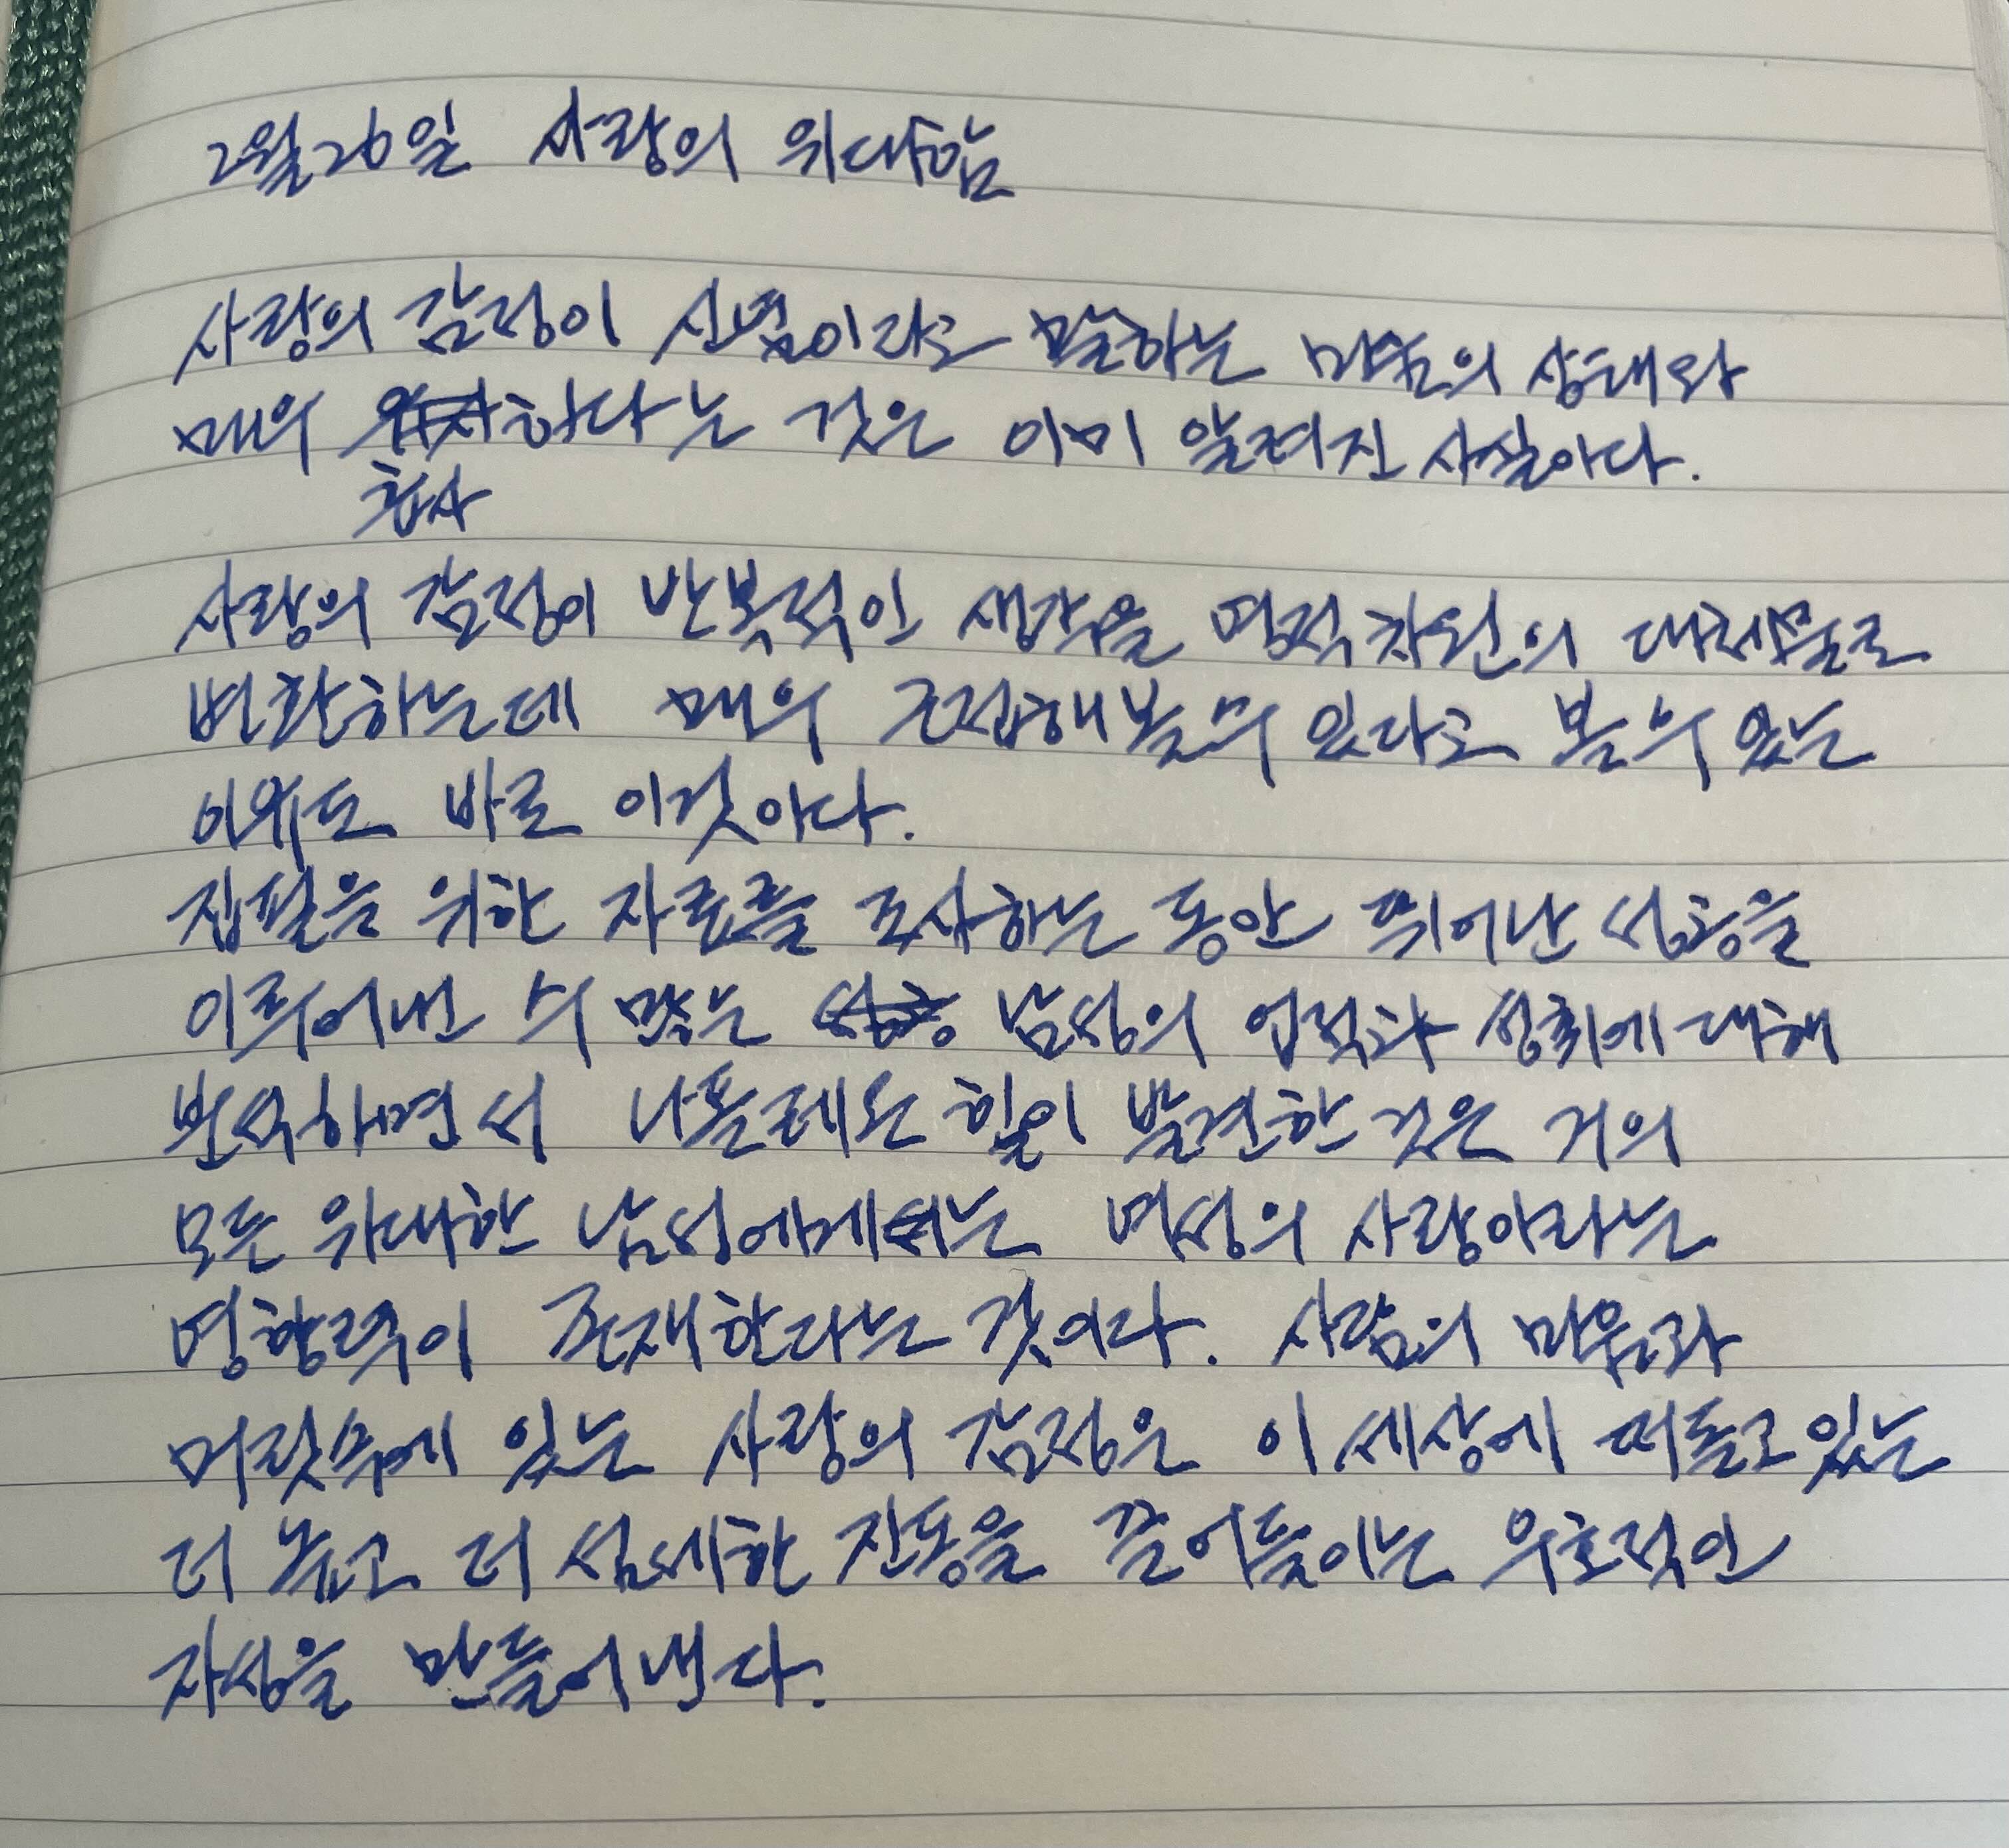 2월26일 사랑의 위대함
사랑의 감정이 신념이라고 말하는 마음의 상태와
매우 하다는 것은 이미 알려진 사실이다.
흡사
사랑의 감정이 반복적인 생각을 영적차원의 대체물로
변환하는데 매우 근접해볼수 있다고 볼 수 있는
이유도 바로 이것이다.
집필을 위한 자료를 조사하는 동안 뛰어난 성공을
이루어낸 수 많은 남성의 업적과 성취에 대해
분석하면서 나폴레온 힐이 발견한 것은 거의
모든 위대한 남성에게는 여성의 사랑이라는
영향력이 존재한다는 것이다. 사람의 마음과
머릿속에 있는 사랑의 감정은 이 세상에 떠돌고 있는
더 높고 더 섬세한 진동을 끌어들이는 우호적인
자성을 만들어낸다.